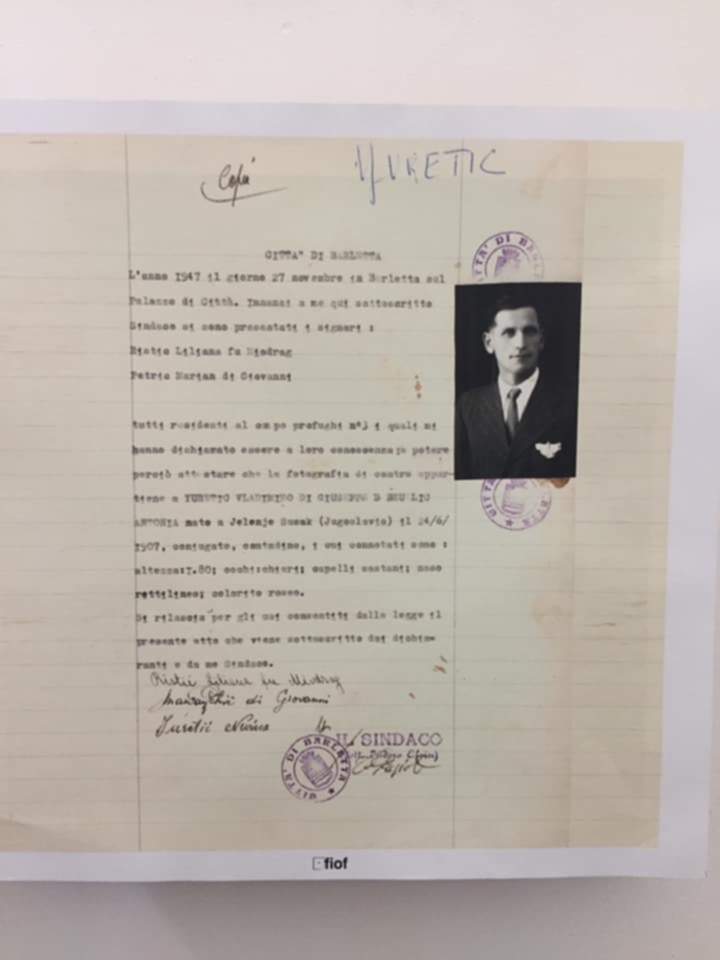 Copia
YURETIC
CITTA' DI BARLETTA
CITTA' DI BARLETTA
L'anno 1947 il giorno 27 novembre in Barletta sul
Palazzo di Città. Innanzi a me qui sottoscritto
Sindaco si sono presentati i signori :
Ristic Liliana fu Miodrag
Petric Marian di Giovanni
tutti residenti al campo profughi n°3 i quali mi
hanno dichiarato essere a loro conoscenza potere
perciò attestare che la fotografia di contro appar-
tiene a YURETIC VLADIMIRO DI GIUSEPPE
ANTONIA nato a Jelenje Susak (Jugoslavia) il 24/6/
1907, coniugato, contadino, i cui connotati sono :
altezza:1.80; occhi:chiari; capelli castani; naso
rettilineo; colorito roseo.
Si rilascia per gli usi consentiti dalla legge il
presente atto che viene sottoscritto dai dichia-
ranti e da me Sindaco.
Ristić Liliana fu Miodrag
di Giovanni
Juretić
CITTA' DI BARLETTA
IL SINDACO
CITTA' DI BARLETTA
fiof